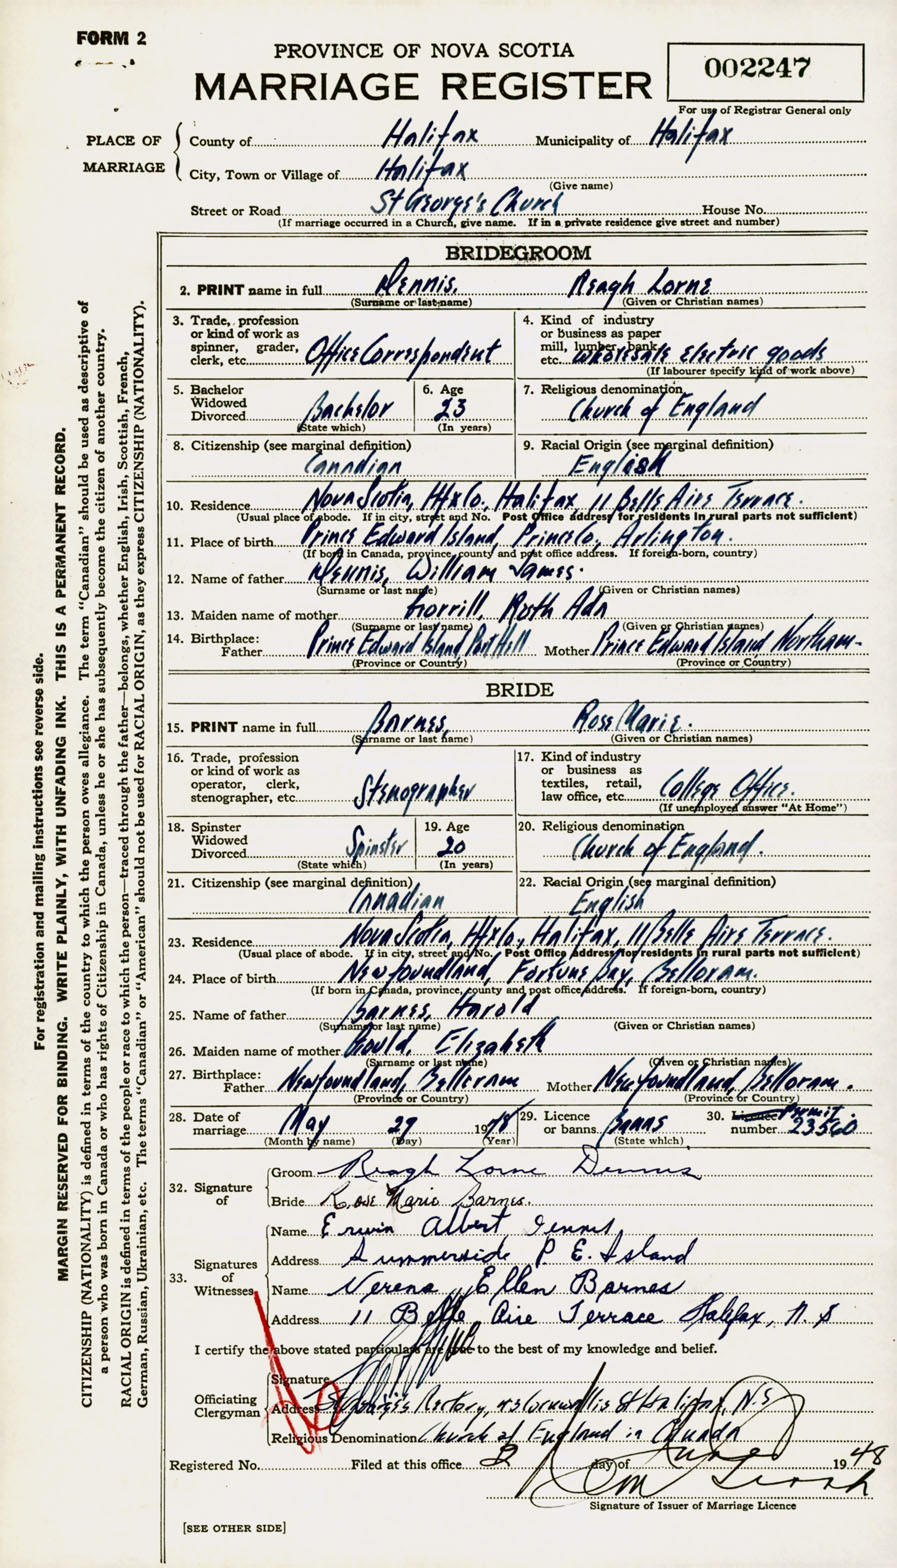 FORM 2
PROVINCE OF NOVA SCOTIA
MARRIAGE REGISTER
002247
For use of Registrar General only
PLACE OF MARRIAGE
County of Halifax Municipality of Halifax
City, Town or Village of Halifax
(Give name)
Street or Road St George's Church House No.
(If marriage occurred in a Church, give name. If in a private residence give street and number)
BRIDEGROOM
2. PRINT name in full Dennis, Reagh Lorne
(Surname or last name) (Given or Christian names)
3. Trade, profession or kind of work as spinner, grader, clerk, etc. Office Correspondent
4. Kind of industry or business as paper mill, lumber, bank, etc. Wholesale Electric goods
(If labourer specify kind of work above)
5. Bachelor Widowed Divorced Bachelor
(State which)
6. Age 23
(In years)
7. Religious denomination Church of England
8. Citizenship (see marginal definition) Canadian
9. Racial Origin (see marginal definition) English
10. Residence Nova Scotia, Hfx Co. Halifax, 11 Bells Airs Terrace.
(Usual place of abode. If in city, street and No. Post Office address for residents in rural parts not sufficient)
11. Place of birth Prince Edward Island, Prince Co, Arlington.
(If born in Canada, province, county and post office address. If foreign-born, country)
12. Name of father Dennis, William James.
(Surname or last name) (Given or Christian names)
13. Maiden name of mother Gorrill, Ruth Ada
(Surname or last name) (Given or Christian names)
14. Birthplace: Father Prince Edward Island Port Hill Mother Prince Edward Island Northam
(Province or Country) (Province or Country)
BRIDE
15. PRINT name in full Barnes, Rose Marie.
(Surname or last name) (Given or Christian names)
16. Trade, profession or kind of work as operator, clerk, stenographer, etc. Stenographer
17. Kind of industry or business as textiles, retail, law office, etc. College Office.
(If unemployed answer "At Home")
18. Spinster Widowed Divorced Spinster
(State which)
19. Age 20
(In years)
20. Religious denomination Church of England.
21. Citizenship (see marginal definition) Canadian
22. Racial Origin (see marginal definition) English
23. Residence Nova Scotia, Hfx Co, Halifax, 11 Bells Airs Terrace.
(Usual place of abode. If in city, street and No. Post Office address for residents in rural parts not sufficient)
24. Place of birth Newfoundland, Fortune Bay, Belloram.
(If born in Canada, province, county and post office address. If foreign-born, country)
25. Name of father Barnes, Harold
(Surname or last name) (Given or Christian names)
26. Maiden name of mother Gould, Elizabeth
(Surname or last name) (Given or Christian names)
27. Birthplace: Father Newfoundland, Belloram Mother Newfoundland, Belloram.
(Province or Country) (Province or Country)
28. Date of marriage May 29 1948
(Month by name) (Day) (Year)
29. Licence or banns Banns
(State which)
30. Licence Permit number 23560
32. Signature of
Groom Reagh Lorne Dennis
Bride Rose Marie Barnes.
33. Signatures of Witnesses
Name Erwin Albert Dennis
Address Summerside P. E. Island
Name Verena Ellen Barnes
Address 11 Belle Aire Terrace Halifax, N. S
I certify the above stated particulars are true to the best of my knowledge and belief.
Officiating Clergyman
Signature
Address St George's Rectory, Cornwallis St Halifax, N.S
Religious Denomination Church of England in Canada
Registered No. Filed at this office 2 day of June 1948
Signature of Issuer of Marriage Licence
[SEE OTHER SIDE]
For registration and mailing instructions see reverse side.
MARGIN RESERVED FOR BINDING. WRITE PLAINLY, WITH UNFADING INK. THIS IS A PERMANENT RECORD.
CITIZENSHIP (NATIONALITY) is defined in terms of the country to which the person owes allegiance. The term "Canadian" should be used as descriptive of
a person who was born in Canada or who has rights of Citizenship in Canada, unless he or she has subsequently become the citizen of another country.
RACIAL ORIGIN is defined in terms of the people or race to which the person—traced through the father—belongs, whether English, Irish, Scottish, French,
German, Russian, Ukrainian, etc. The terms "Canadian" or "American" should not be used for RACIAL ORIGIN, as they express CITIZENSHIP (NATIONALITY).